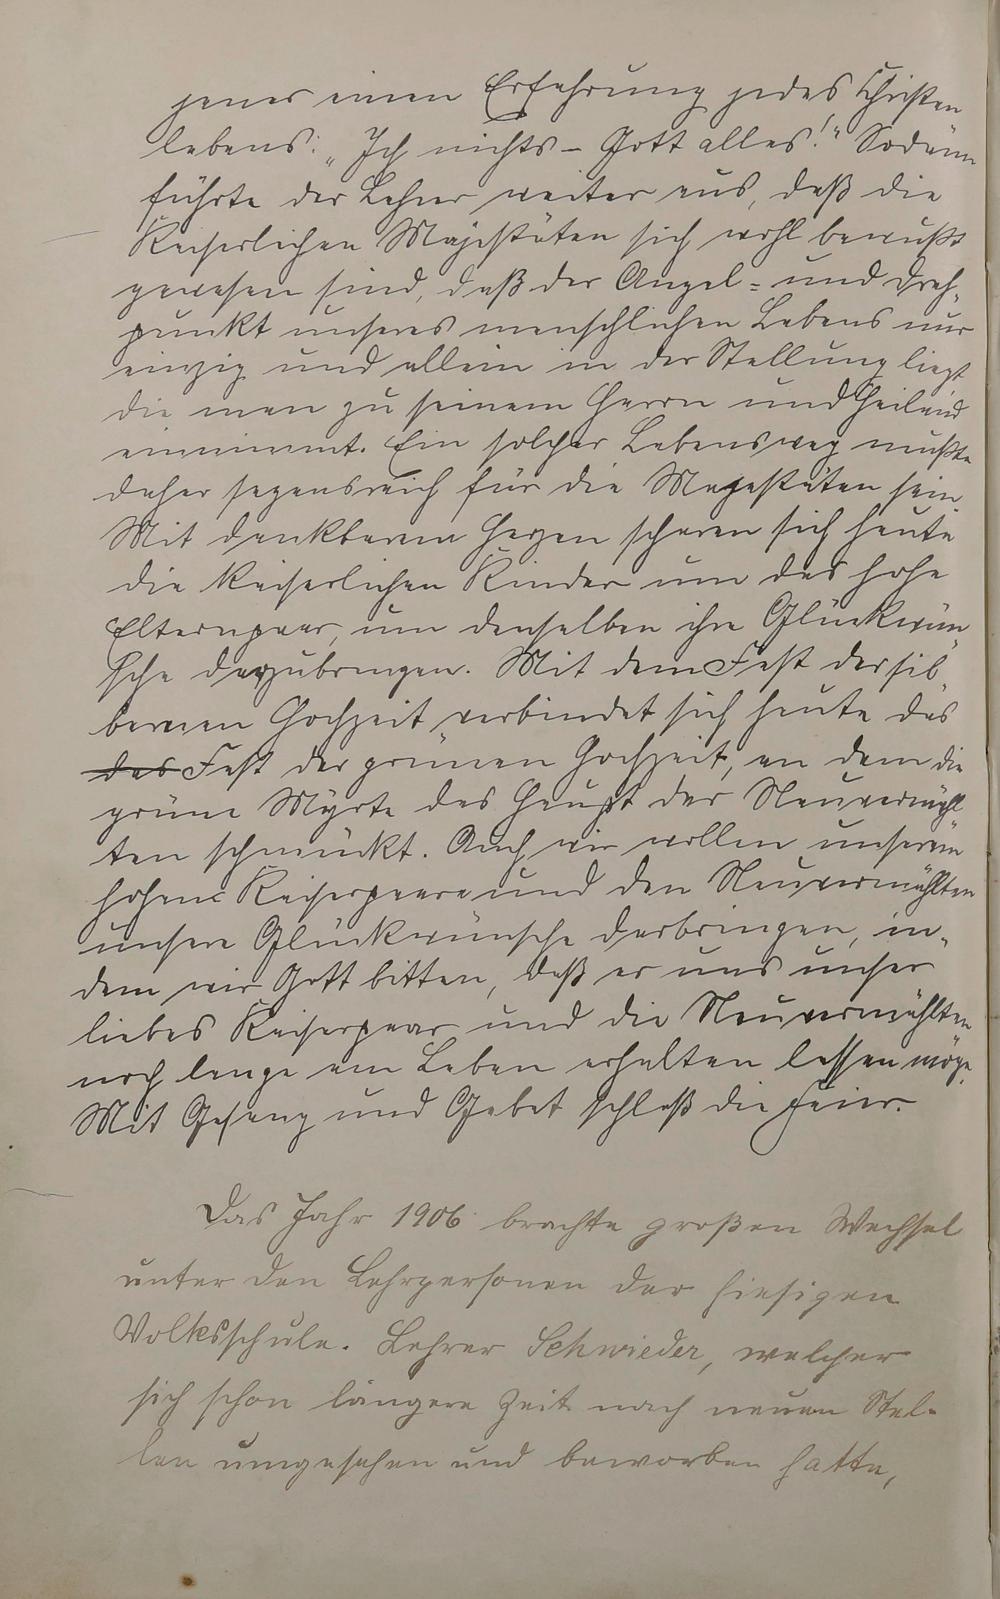 jener einen Erfahrung jedes Christen
lebens: „Ich nichts – Gott alles!“ Sodann
führte der Lehrer weiter aus, daß die
Kaiserlichen Majestäten sich wohl bewußt
gewesen sind, daß der Angel= und Dreh-
punkt unseres menschlichen Lebens nur
einzig und allein in der Stellung liegt
die man zu seinem Herrn und Heiland
einnimmt. Ein solcher Lebensweg mußte
daher segensreich für die Majestäten sein.
Mit dankbarem Herzen scharen sich heute
die Kaiserlichen Kinder um das hohe
Elternpaar, um denselben ihre Glückwün-
sche darzubringen. Mit dem Fest der sil-
bernen Hochzeit verbindet sich heute das
das Fest der grünen Hochzeit, an dem die
grüne Myrte das Haupt der Neuvermähl
ten schmückt. Auch wir wollen unserem
hohen Kaiserpaare und den Neuvermählten
unsere Glückwünsche darbringen, in-
dem wir Gott bitten, daß er uns unser
liebes Kaiserpaar und die Neuvermählten
noch lange am Leben erhalten lassen möge.
Mit Gesang und Gebet schloß die Feier.
Das Jahr 1906 brachte großen Wechsel
unter den Lehrpersonen der hiesigen
Volksschule. Lehrer Schwieder, welcher
sich schon längere Zeit nach neuen Stel-
len umgesehen und beworben hatte,